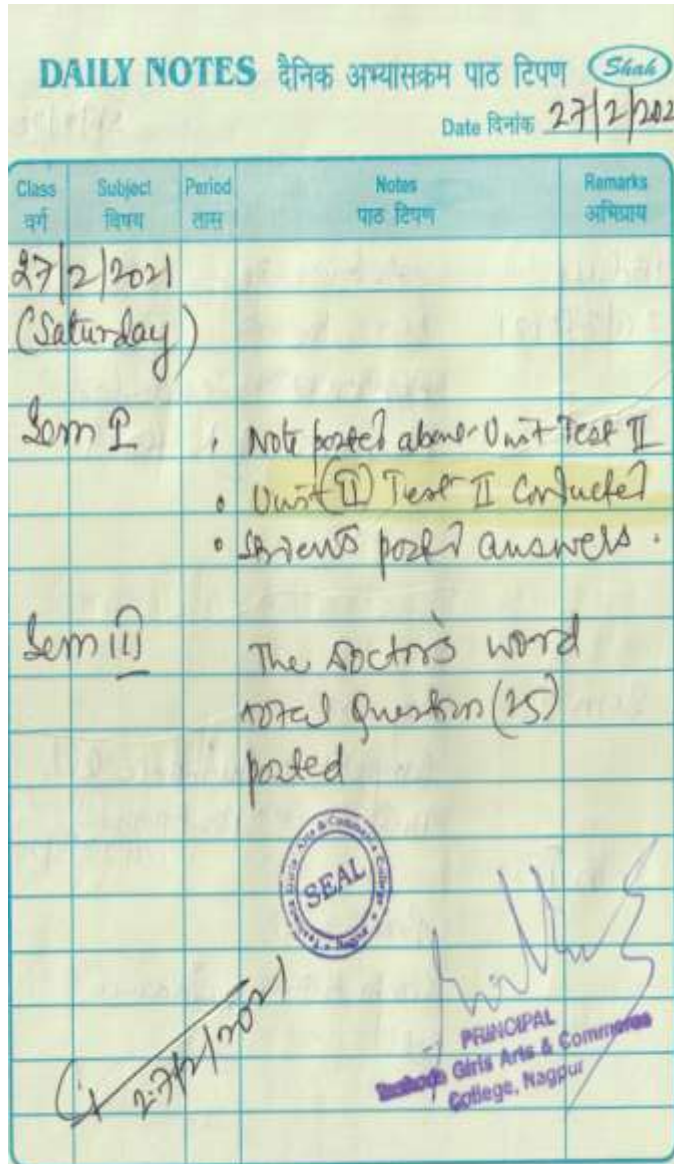 DAILY NOTES दैनिक अभ्यासक्रम पाठ टिपण Shah
Date दिनांक 27/2/202
Class Subject Period Notes Remarks
वर्ग विषय तास पाठ टिपण अभिप्राय
27/2/2021
(Saturday)
Sem I • Note posted about Unit Test II
• Unit (II) Test II Conducted
• Students posted answers.
Sem III The Doctor's word
Total Question (25)
posted
SEAL
27/2/2021
PRINCIPAL
Girls Arts & Commerce
College, Nagpur